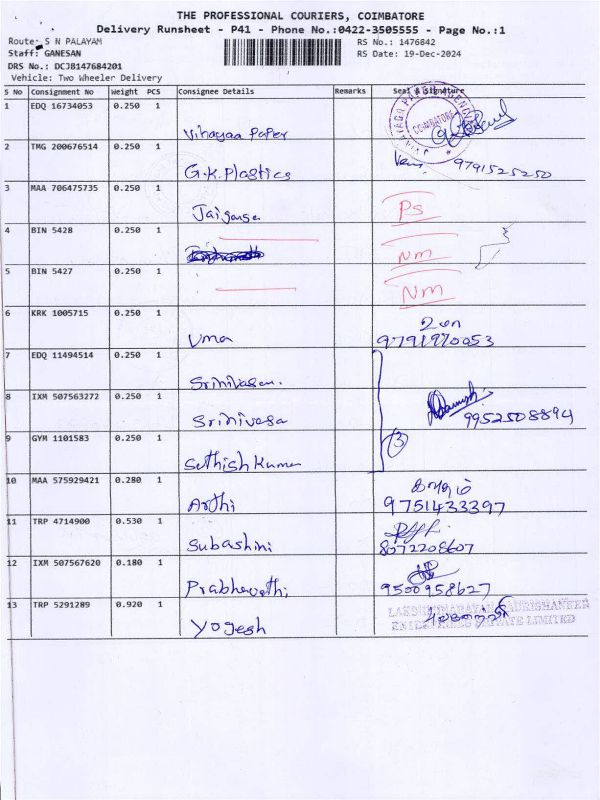 THE PROFESSIONAL COURIERS, COIMBATORE
Delivery Runsheet - P41 - Phone No.:0422-3505555 - Page No.:1
Route: S N PALAYAM
RS No.: 1476842
Staff: GANESAN
RS Date: 19-Dec-2024
DRS No.: DCJB147684201
Vehicle: Two Wheeler Delivery
S No Consignment No Weight PCS Consignee Details Remarks Seal & Signature
1 EDQ 16734053 0.250 1
Vinayaa Paper
COIMBATORE
2 TMG 200676514 0.250 1
G.K.Plastics
9791525250
3 MAA 706475735 0.250 1
Jaiganse
PS
4 BIN 5428 0.250 1
NM
5 BIN 5427 0.250 1
NM
6 KRK 1005715 0.250 1
Uma
உமா
9791970053
7 EDQ 11494514 0.250 1
Srinivasan.
8 IXM 507563272 0.250 1
Srinivasa
9952508894
9 GYM 1101583 0.250 1
Sethish Kumar
3
10 MAA 575929421 0.280 1
Arthi
9751433397
11 TRP 4714900 0.530 1
Subashini
8072208607
12 IXM 507567620 0.180 1
Prabhavathi
9500958627
13 TRP 5291289 0.920 1
Yogesh
PRIVATE LIMITED